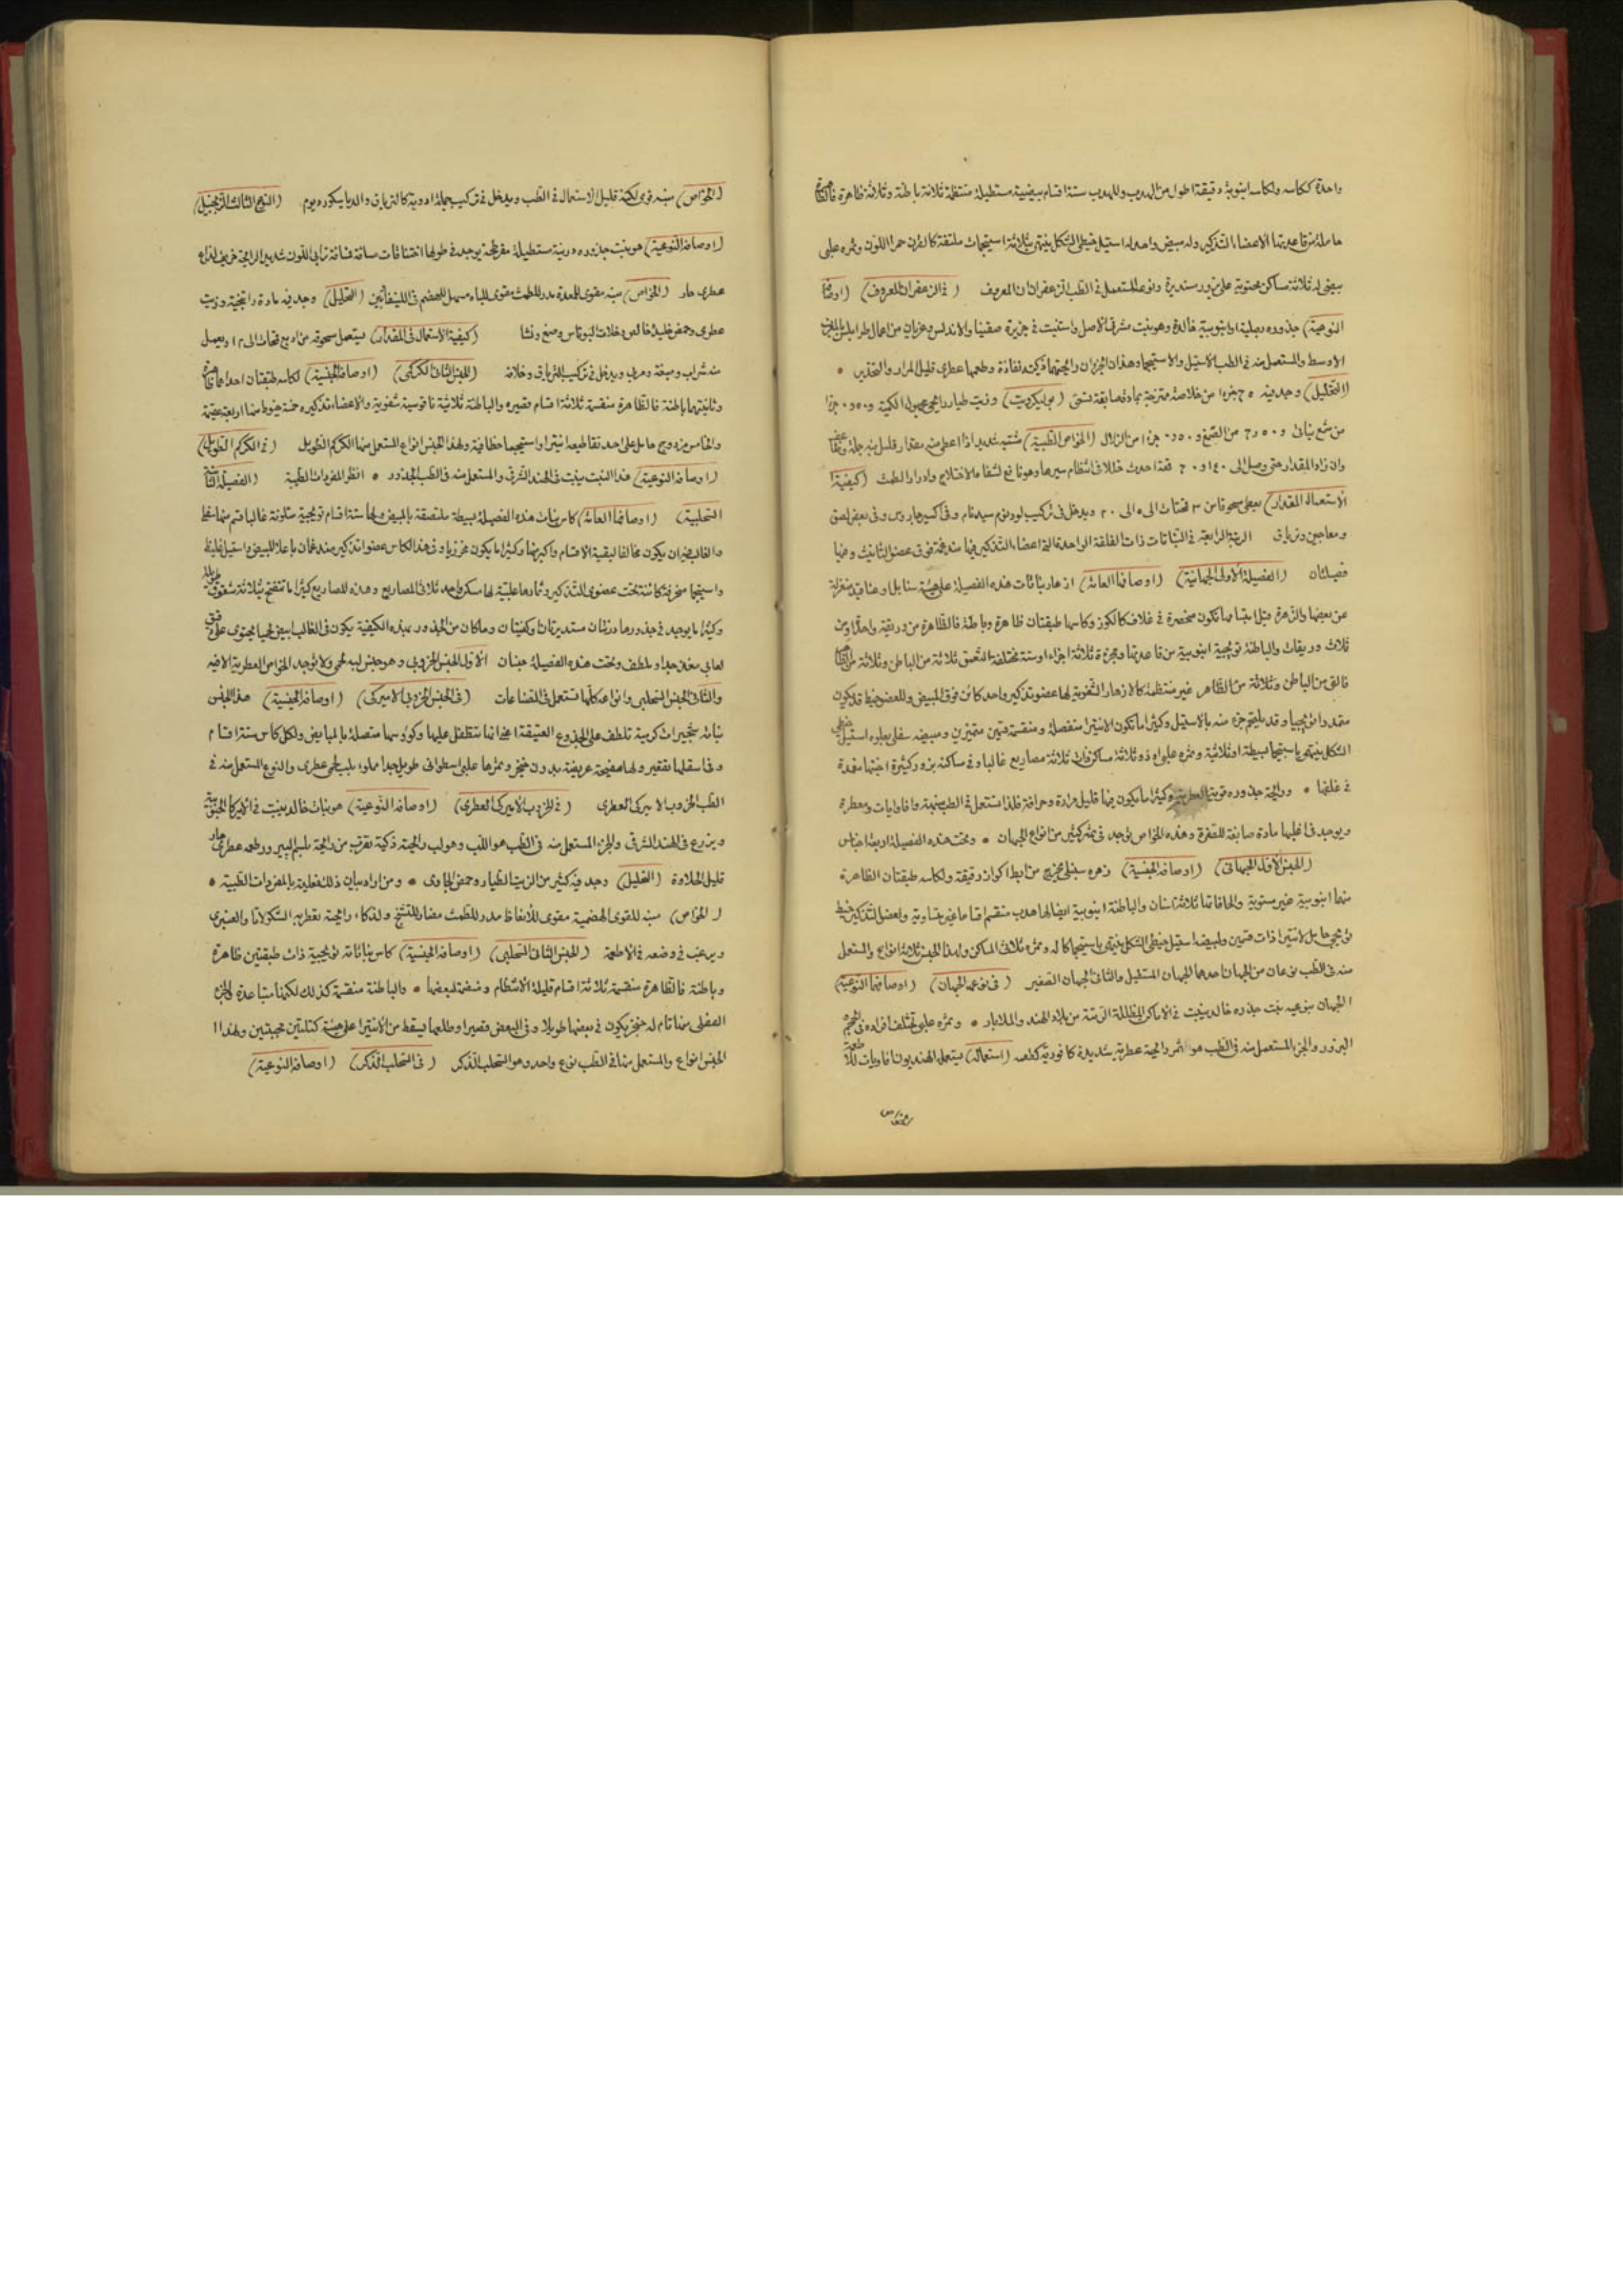 واحدة ككاسه ولكاسه انبوبة دقيقة اطول من الهدب وللهدب ستة اقسام بيضية مستطيلة منتظمة ثلاثة باطنة وثلاثة ظاهرة
حاملة من قاعدتها الاعضاء التذكير وله مبيض واحد له استيل خيطي الشكل ينتهى بثلاثة استيجمات ملتفة كالقرن حمرا اللون وثمره علبى
بيضى له ثلاثة مساكن محتوية على بزور مستديرة ونوعه المستعمل فى الطب الزعفران المعروف (فى الزعفران المعروف) (اوصافه
النوعية) جذوره بصلية وهو ينبت شرقى الاصل واستنبت فى جزيرة صقيليا والاندلس
الاوسط والمستعمل منه فى الطب الاستيل والاستيجما وهذان الجزءان رائحتهما ذكية نفاذة وطعمها عطرى قليل المرار والتخدير •
(التحليل) وجد فيه ٦٥ جزءا من خلاصة ممتزجة بمادة صابغة تسمى (بوليكرويت) وزيت طيار رائحى مجهول الكمية
من شمع نباتى و ٦٫٥٠ من الصمغ و ٠٫٥٠ جزءا من الزلال (الخواص الطبية) منبه شديد اذا اعطى منه مقدار قليل نبه جملة
وان زاد المقدار حتى وصل الى فقد احدث خللا فى انتظام سيرها وهو نافع لشفاء الاختلاج وادرار الطمث (كيفية
الاستعمال المقدار) يعطى مسحوقا من ٣ قمحات الى ٥ الى ٢٠ ويدخل فى تركيب لودنوم سيدنام وفى اكسير جاروس وفى بعض لصق
ومعاجين وترياق الرتبة الرابعة فى النباتات ذات الفلقة الواحدة التى اعضاء التذكير فيها مندغمة فوق عضو التانيث وفيها
فصيلتان (الفصيلة الاولى الحمامية) (اوصافها العامة) ازهار نباتات هذه الفصيلة على هيئة سنابل او عناقيد منعزلة
عن بعضها والزهرة قبل انبثاثها تكون منحصرة فى غلاف كالكوز وكاسها طبقتان ظاهرة وباطنة فالظاهرة من وريقة واحدة او من
ثلاث وريقات والباطنة تويجية انبوبية من قاعدتها ومجزءة ثلاثة اجزاء او ستة مختلفة التعمق ثلاثة من الباطن وثلاثة من
فالتى من الباطن وثلاثة من الظاهر غير منتظمة كالازهار الشفوية لها عضو تذكير واحد كائن فوق المبيض وللعضو خيط قد يكون
متمددا تويجيا وقد يلتحم جزء منه بالاستيل وكثيرا ما تكون الانتيرا منفصلة ومنقسمة قسمين متميزين ومبيضه سفلى يعلوه استيل
الشكل ينتهى باستيجما بسيطة او ثلاثية وثمره علبى او ذو ثلاثة مساكن وذات ثلاثة مصاريع غالبا وفى مساكنه بزور كثيرة
فى غلفها • ورائحة جذوره قوية العطرية وكثيرا ما يكون فيها قليل مرارة وحرافة فلذا تستعمل فى الطب منبهة وافاويات ومعطرة
ويوجد فى اغلبها مادة صابغة للصفرة وهذه الخواص توجد فى ثمر كثير من انواع الحمهان • وتحت هذه الفصيلة اربعة اجناس
(الجنس الاول الحمهانى) (اوصافه الجنسية) زهره سنبلى يخرج من ابط اكواز دقيقة ولكاسه طبقتان الظاهرة
منها انبوبية غير مستوية والحافة لها ثلاثة اسنان والباطنة انبوبية ايضا لها هدب منقسم اقساما غير متساوية ولعضو التذكير خيط
تويجى حامل لانتيرا ذات قسمين ولمبيضه استيل خيطى الشكل ينتهى باستيجما كاله وثمره ثلاثى المساكن ولهذا الجنس ثلاثة انواع والمستعمل
منه فى الطب نوعان من الحمهان احدهما الحمهان المستطيل والثانى الحمهان الصغير (فى نوعى الحمهان) (اوصافهما النوعية)
الحمهان بنوعيه نبت جذره خالد ينبت فى الاماكن المظللة الرطبة من بلاد الهند والملابار • وثمره علبى تختلف افراده فى الحجم
البزور والجزء المستعمل منه فى الطب هو الثمر رائحته عطرية شديدة كافورية كطعمه (استعماله) يستعمله الهنديون افاويات
(الخواص) منبه قوى لكنه قليل الاستعمال فى الطب ويدخل فى تركيب جملة ادوية كالترياق والدياسكورديوم (النوع الثالث الزنجبيل)
(اوصافه النوعية) هو نبت جذوره درنية مستطيلة مفرطحة يوجد فى طولها اختناقات مسافة فمسافة ترابى اللون شديد الرائحة حريف لذاع
عطرى حار (الخواص) منبه مقوى للمعدة مدر للطمث مقوى للباه مسهل للهضم فى اللينفاتيين (التحليل) وجد فيه مادة راتنجية وزيت
عطرى وحمض خليك خالص وخلات البوتاس وصمغ ونشا (كيفية الاستعمال فى المقدار) يستعمل مسحوقه من اربع قمحات الى ١٢ ويعمل
منه شراب وصبغة ومربى ويدخل فى تركيب الترياق وخلافه (الجنس الثانى الكركمى) (اوصافه الجنسية) لكاسه طبقتان احداهما
وثانيتهما باطنة فالظاهرة منقسمة ثلاثة اقسام قصيرة والباطنة ثلاثية ناقوسية شفوية والاعضاء تذكيره خمسة خيوط منها اربعة عقيمة
والخامس مزدوج حامل على احد تقاطيعه انتيرا واستيجما خطافية ولهذا الجنس انواع المستعمل منها الكركم الطويل (فى الكركم الطويل)
(اوصافه النوعية) هذا النبت ينبت فى الهند الشرقى والمستعمل منه فى الطب الجذور • انظر المفردات الطبية (الفصيلة الثانية
الثحلبية) (اوصافها العامة) كاس نباتات هذه الفصيلة بسيطة ملتصقة بالمبيض ولها ستة اقسام تويجية متلونة غالبا قسم منها سفلى
والغالب فيه ان يكون مخالفا لبقية الاقسام واكبرها وكثيرا ما يكون مخرزيا وفى هذا الكاس عضوا تذكير مندغمان باعلا المبيض واستيل غليظ
واستيجما منحرفة كائنة تحت عضوى التذكير وثمارها علبية لها مسكن واحد ثلاثى المصاريع وهذه المصاريع كثيرا ما تنفتح بثلاثة شقوق طويلة
وكثيرا ما يوجد فى جذورها درنتان مستديرتان او كفيتان وما كان من الجذور بهذه الكيفية يكون فى الغالب ابيض لحميا يحتوى على
لعابى مغذ جدا وملطف وتحت هذه الفصيلة جنسان الاول الجنس الخروبى وهو جنس لبه لحمى ولا توجد الخواص العطرية الا فيه
والثانى الجنس الثحلبى وانواعه كلها تستعمل فى الصناعات (فى الجنس الخروبى الاميركى) (اوصافه الجنسية) هذا الجنس
نباته شجيرات كرمية تلطف على الجذوع العتيقة اغصانها تتطفل عليها وكؤوسها متصلة بالمبايض ولكل كاس ستة اقسام
وفى اسفلها تقعير ولها صفيحة عريضة بدون خنجر وثمرها علبى اسطوانى طويل جدا مملوء بلب لحمى عطرى والنوع المستعمل منه فى
الطب الخروب الاميركى العطرى (فى الخروب الاميركى العطرى) (اوصافه النوعية) هو نبات خالد ينبت فى الاميركا الجنوبية
ويزرع فى الهند الشرقى والجزء المستعمل منه فى الطب هو اللب وهو لب رائحته ذكية تقرب من رائحة بلسم البيرو وطعمه عطرى حار
قليل الحلاوة (التحليل) وجد فيه كثير من الزيت الطيار وحمض الجاوى • ومن اراد بيان ذلك فعليه بالمفردات الطبية •
(الخواص) منبه للقوى الهضمية مقوى للانعاظ مدر للطمث مضاد للتشنج ولذكاء رائحته تعطر به الشكولاتا والعنبرى
ويرغب فى وضعه فى الاطعمة (الجنس الثانى الثحلبى) (اوصافه الجنسية) كاس نباتاته تويجية ذات طبقتين ظاهرة
وباطنة فالظاهرة منقسمة ثلاثة اقسام قليلة الانتظام ومنضمة لبعضها • والباطنة منقسمة كذلك لكنها متباعدة الجزء
السفلى منها تام له خنجر يكون فى بعضها طويلا وفى البعض قصيرا وطلعها يسقط من الانتيرا على هيئة كتلتين محببتين ولهذا
الجنس انواع والمستعمل منها فى الطب نوع واحد وهو الثحلب الذكر (فى الثحلب الذكر) (اوصافه النوعية)